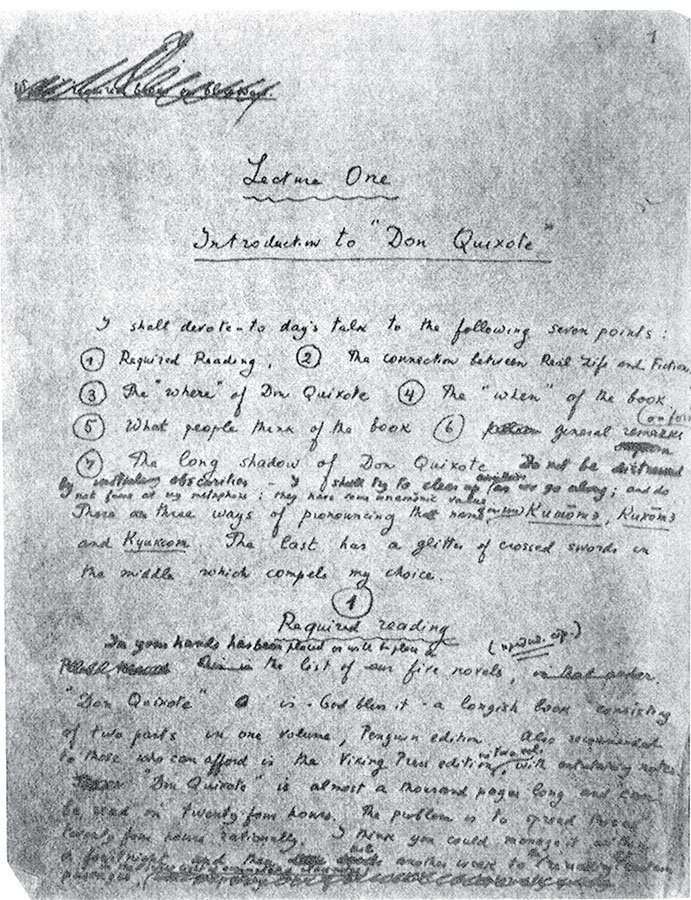 1
required
Lecture One
Introduction to "Don Quixote"
I shall devote to day's talk to the following seven points:
① Required Reading, ② The connection between Real Life and Fiction,
③ The "where" of Don Quixote ④ The "when" of the book
(on form
⑤ What people think of the book ⑥ general remarks
⑦ The long shadow of Don Quixote Do not be distressed
by initial obscurities - I shall try to clear up as we go along; and do
not fume at my metaphors; they have some mnemonic value
There are three ways of pronouncing that name
and The last has a glitter of crossed swords in
the middle which compels my choice.
①
Required reading
In your hands has been placed or will be placed
the list of our five novels, in that order.
"Don Quixote" is - God bless it - a longish book consisting
of two parts in one volume, Penguin edition. Also recommended
to those who can afford is the Viking Press edition, with notes
in two vols.
"Don Quixote" is almost a thousand pages long and can
be read in twenty-four hours. The problem is to spread those
twenty four hours rationally. I think you could manage it within
a fortnight, and then another week to
passages,